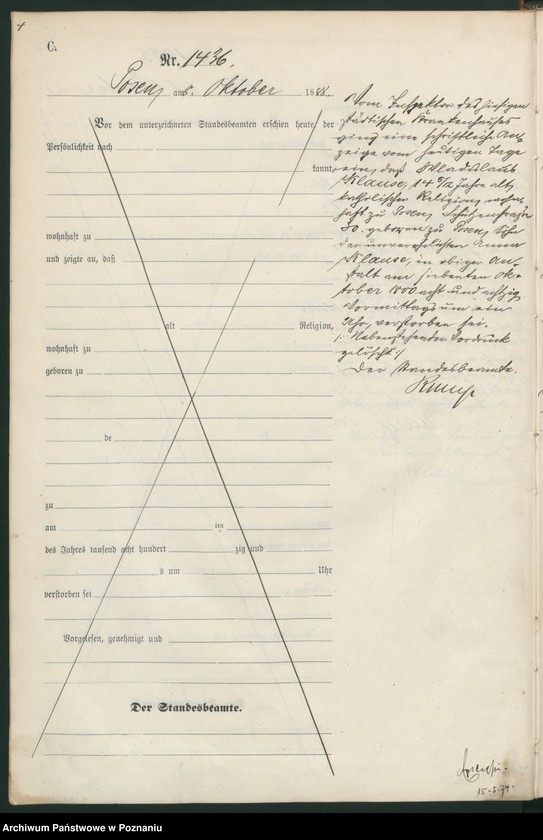 C.
Nr. 1436.
Posen, am 8. Oktober 1888.
Vor dem unterzeichneten Standesbeamten erschien heute, der
Persönlichkeit nach
kannt,
wohnhaft zu
und zeigte an, daß
alt Religion,
wohnhaft zu
geboren zu
de
zu
am ten
des Jahres tausend acht hundert zig und
s um Uhr
verstorben sei
Vorgelesen, genehmigt und
Der Standesbeamte.
Vom Inspektor des hiesigen
städtischen Krankenhauses
ging eine schriftliche An-
zeige vom heutigen Tage
ein, daß Wladislaus
Klause, 14 5/12 Jahre alt,
katholischer Religion, wohn-
haft zu Posen, Schützenstraße
30. geboren zu Posen, Sohn
der unverehelichten Anna
Klause, in obiger An-
stalt am siebenten Ok-
tober 1800 acht und achtzig
Vormittags um ein
Uhr, verstorben sei.
/: Nebenstehender Vordruck
gelöscht :/
Der Standesbeamte.
15-5-74
Archiwum Państwowe w Poznaniu